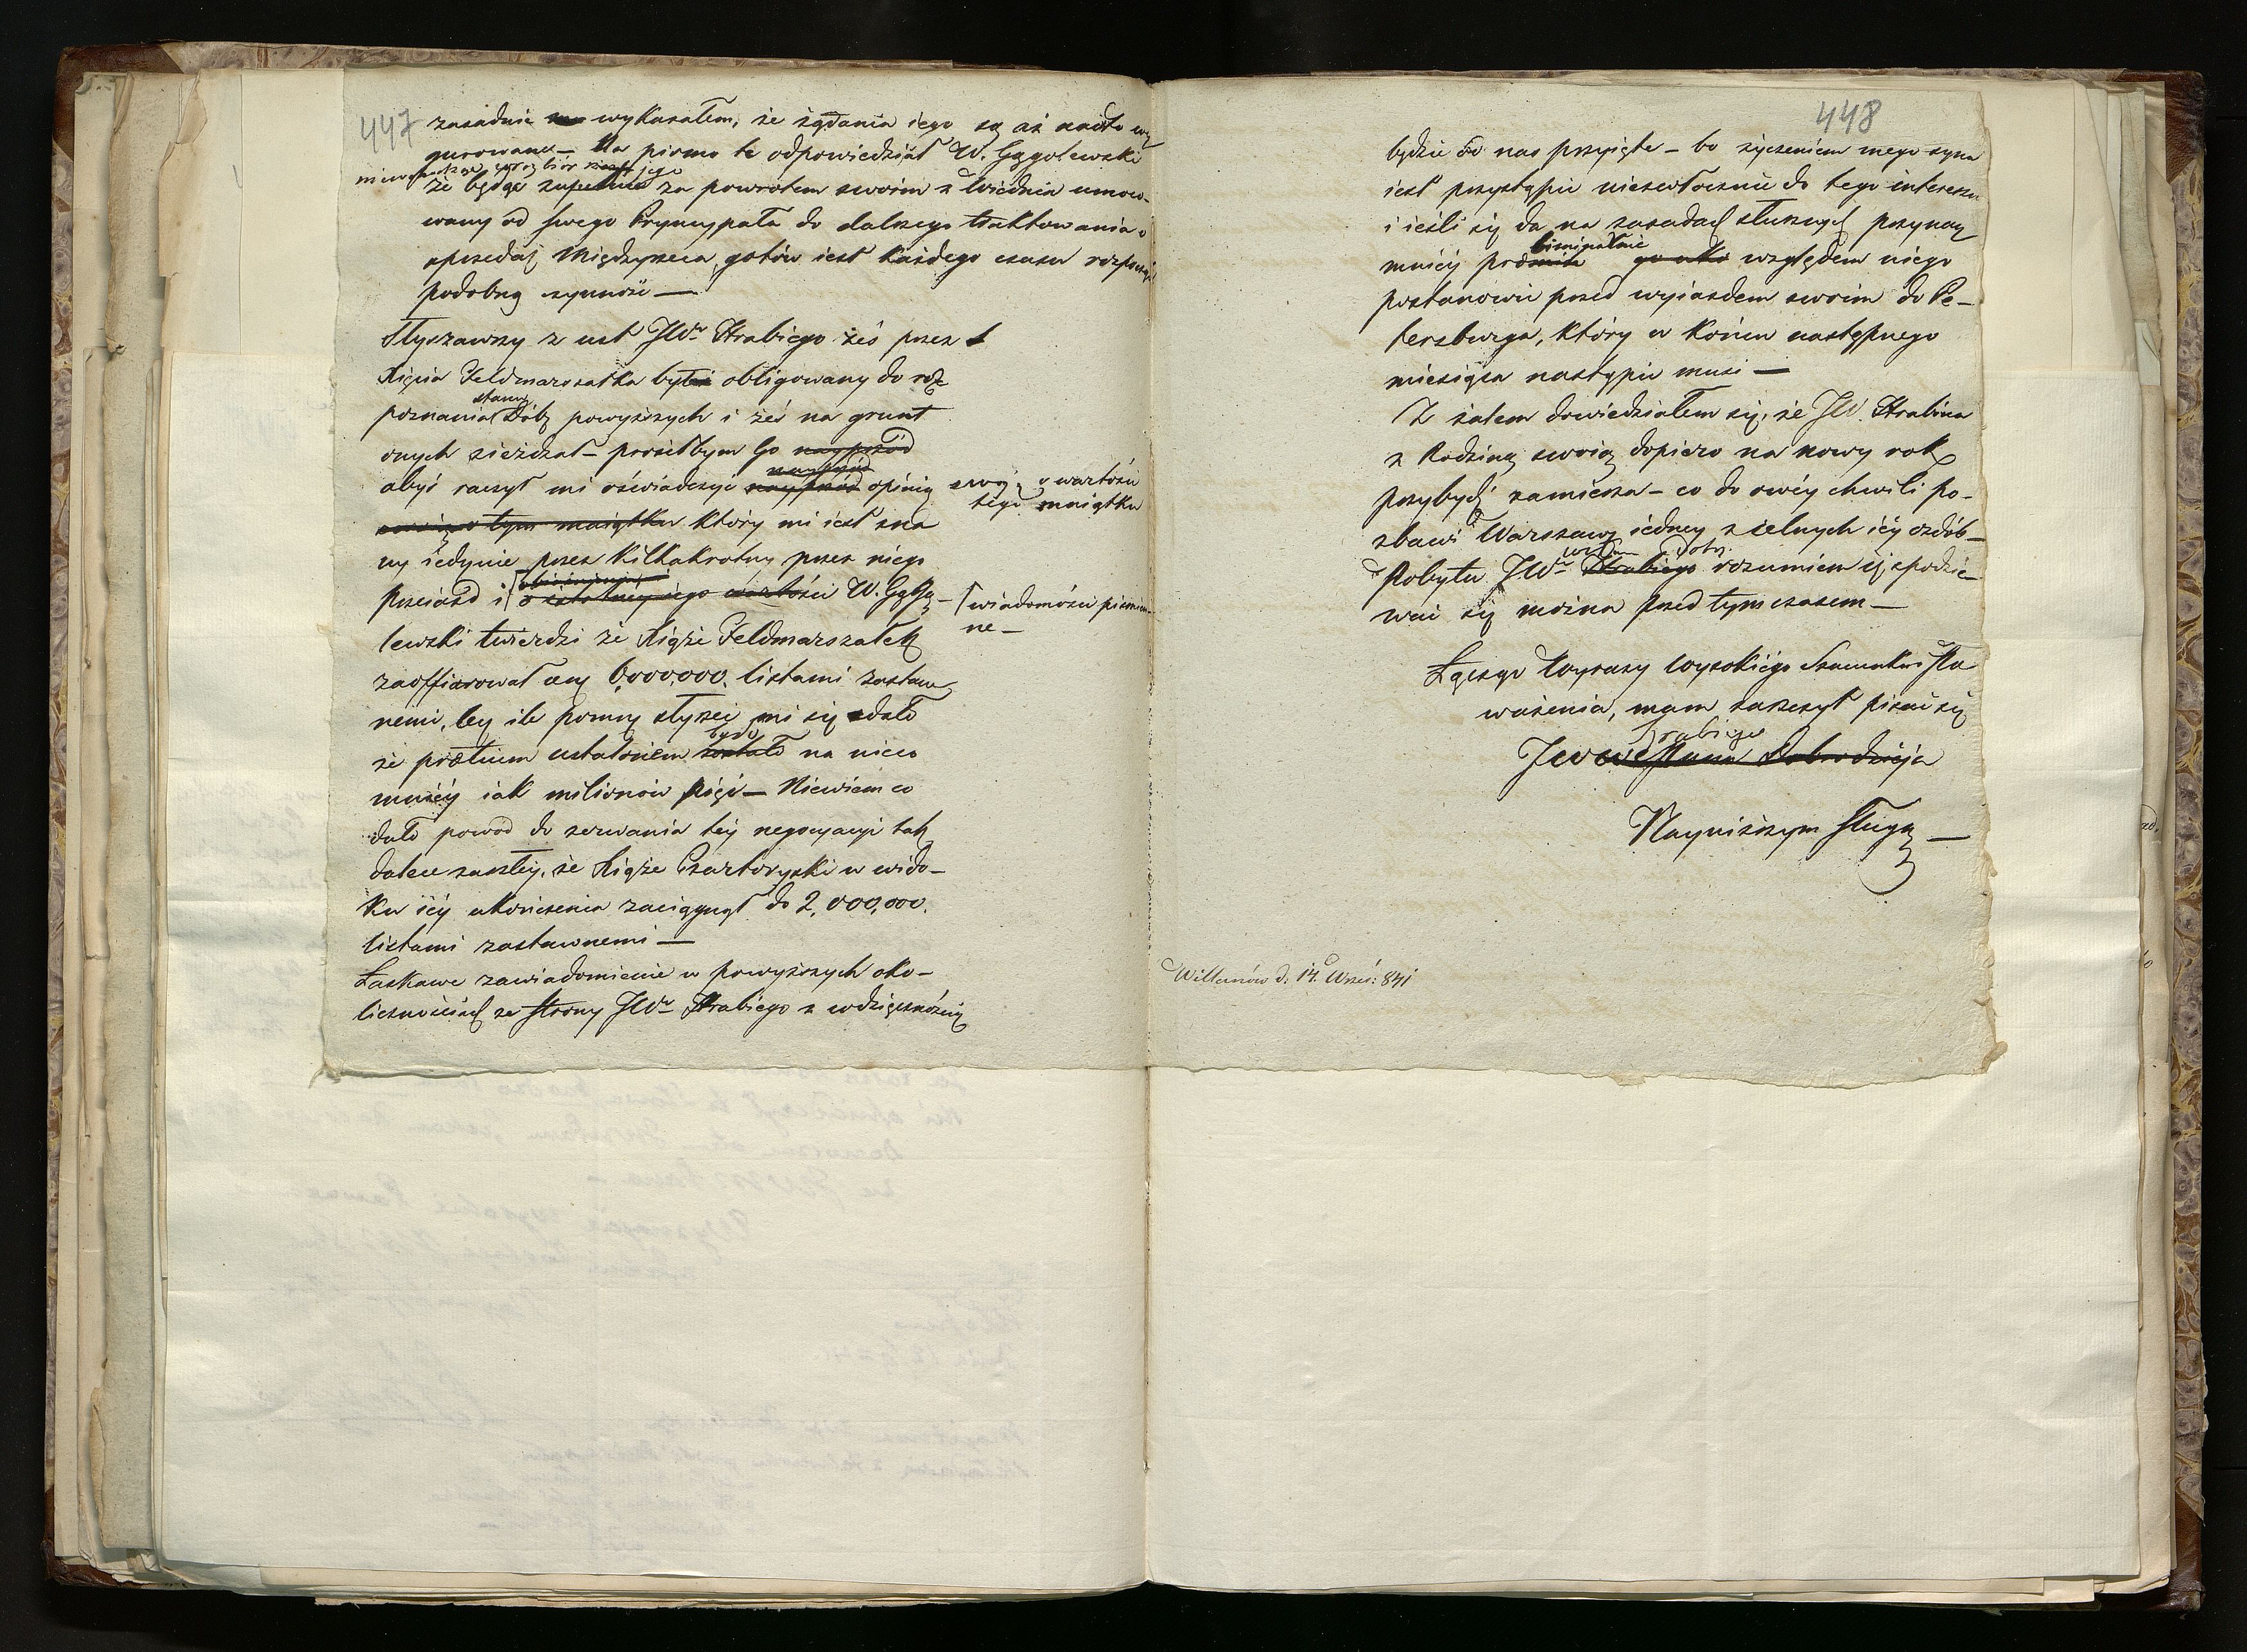 447
zasadnie wykazałem, że żądania iego są aż nadto wy
gurowane – Na pismo te odpowiedział W. Gągolewski
że będąc zupełnie za powrotem swoim z Wiednia umoco-
wany od swego Pryncypała do dalszego traktowania o
sprzedaż Międzyrzeca, gotów iest każdego czasu rozpocząć
podobną czynność —
Słyszawszy z ust JWo Hrabiego żeś przez
Xięcia Feldmarszałka był obligowany do roz
poznania stanu Dóbr powyższych i żeś na grunt
onych zieżdżał – prosiłbym Go nayprzód
abyś raczył mi oświadczyć nayprzód opinię swoią o wartości
tego maiątku
swoią o tym maiątku który mi iest zna
ny iedynie przez kilkakrotny przez niego
przeiazd i o istotney iego wartości W. Gągo- wiadomości piśmien-
ne –
lewski twierdzi że Xiąże Feldmarszałek
zaoffiarował ony 6,000,000. listami zastaw
nemi, lecz ile pomnę słyszeć mi się zdało
że pretium ustalonem było zostało na nieco
mniéy iak milionów pięć – Niewiem co
dało powod do zerwania téy negocyacyi tak
dalece zaszłéy, że Xiąże Czartoryski w wido-
ku iéy ukończenia zaciągnął do 2,000,000.
listami zastawnemi —
Łaskawe zawiadomienie w powyższych oko-
licznościach ze strony JWo Hrabiego z wdzięcznością
448
będzie od nas przyięte – bo życzeniem mego syna
iest przystąpić niezwłocznie do tego interessu
i ieśli się da na zasadach słusznych przynay
mniéy preliminalnie względem niego
postanowić przed wyiazdem swoim do Pe-
tersburga, który w końcu następnego
miesiąca nastąpić musi —
Z żalem dowiedziałem się, że JW. Hrabina
z Rodziną swoią dopiero na nowy rok
przybydź zamierza – co do owéy chwili po-
zbawi Warszawę iedney z celnych iéy ozdób –
Pobytu JWo Hrabiego rozumiem iż spodzie-
wać się można przed tym czasem —
Łącząc wyrazy wysokiégo Szacunku i Po
ważenia, mam zaszczyt pisać się
Hrabiego
JWW Pana Dobrodzieja
Nayniższym sługą —
Willanów d. 14. Wrześ: 841